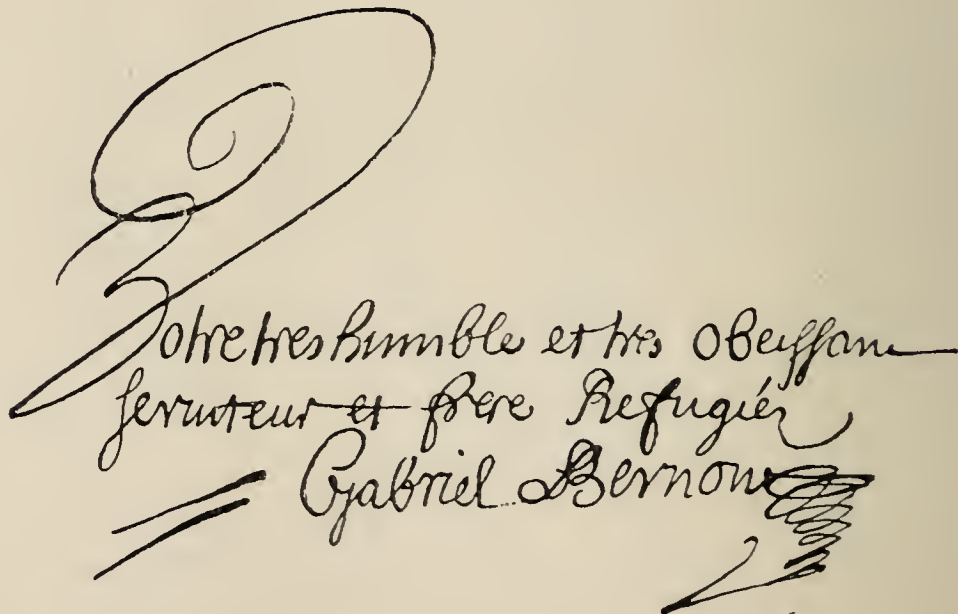 Votre tres humble et tres obeissant
serviteur et frere Refugiéz
Gabriel Bernon